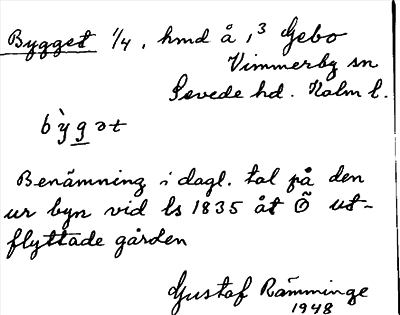 Bygget 1/4, hmd å 1,3 Gebo
Vimmerby sn
Sevede hd. Kalm l.
bỳgət
Benämning i dagl. tal på den
ur byn vid ls 1835 åt Ö ut-
flyttade gården
Gustaf Rämminge
1948